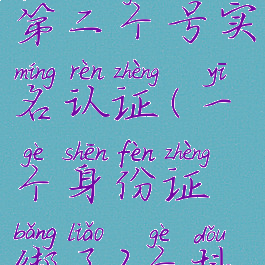 第二个号实
míng rèn zhèng yī
名认证(一
gè shēn fèn zhèng
个身份证
bǎng liǎo gè dǒu
绑了2个抖